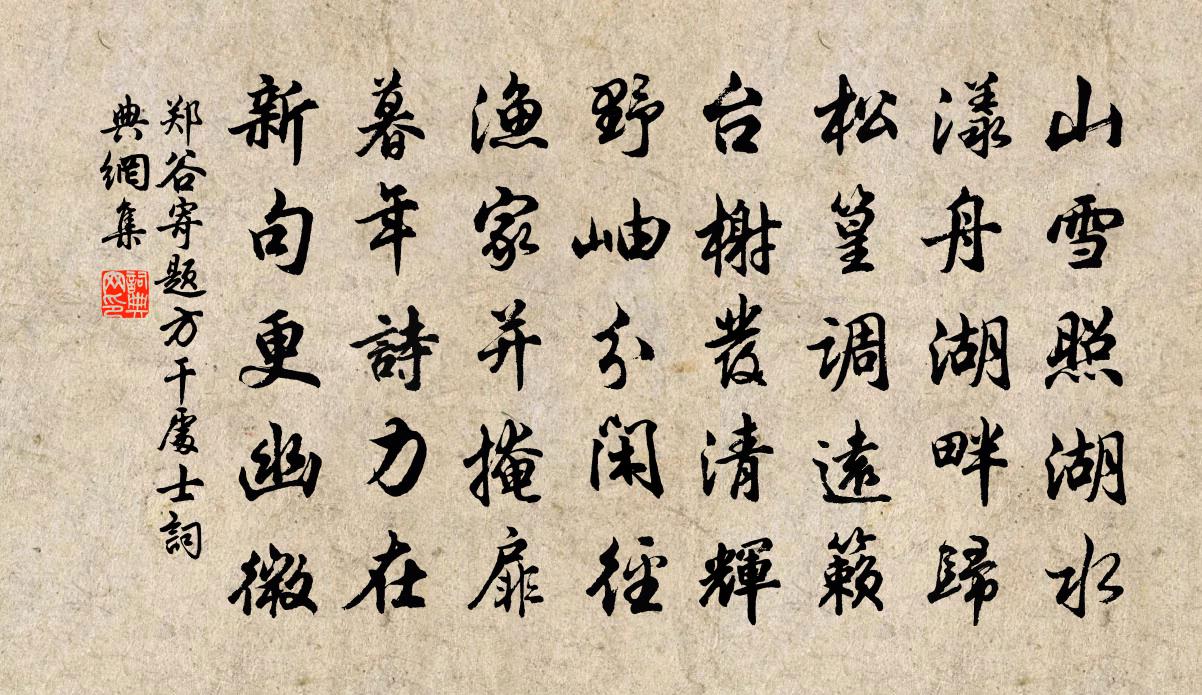 山雪照湖水
漾舟湖畔歸
松篁調遠籟
台榭發清輝
野岫分閑徑
漁家并掩扉
暮年詩力在
新句更幽微
郑谷寄题方干處士詞
典網集
詞典
网印